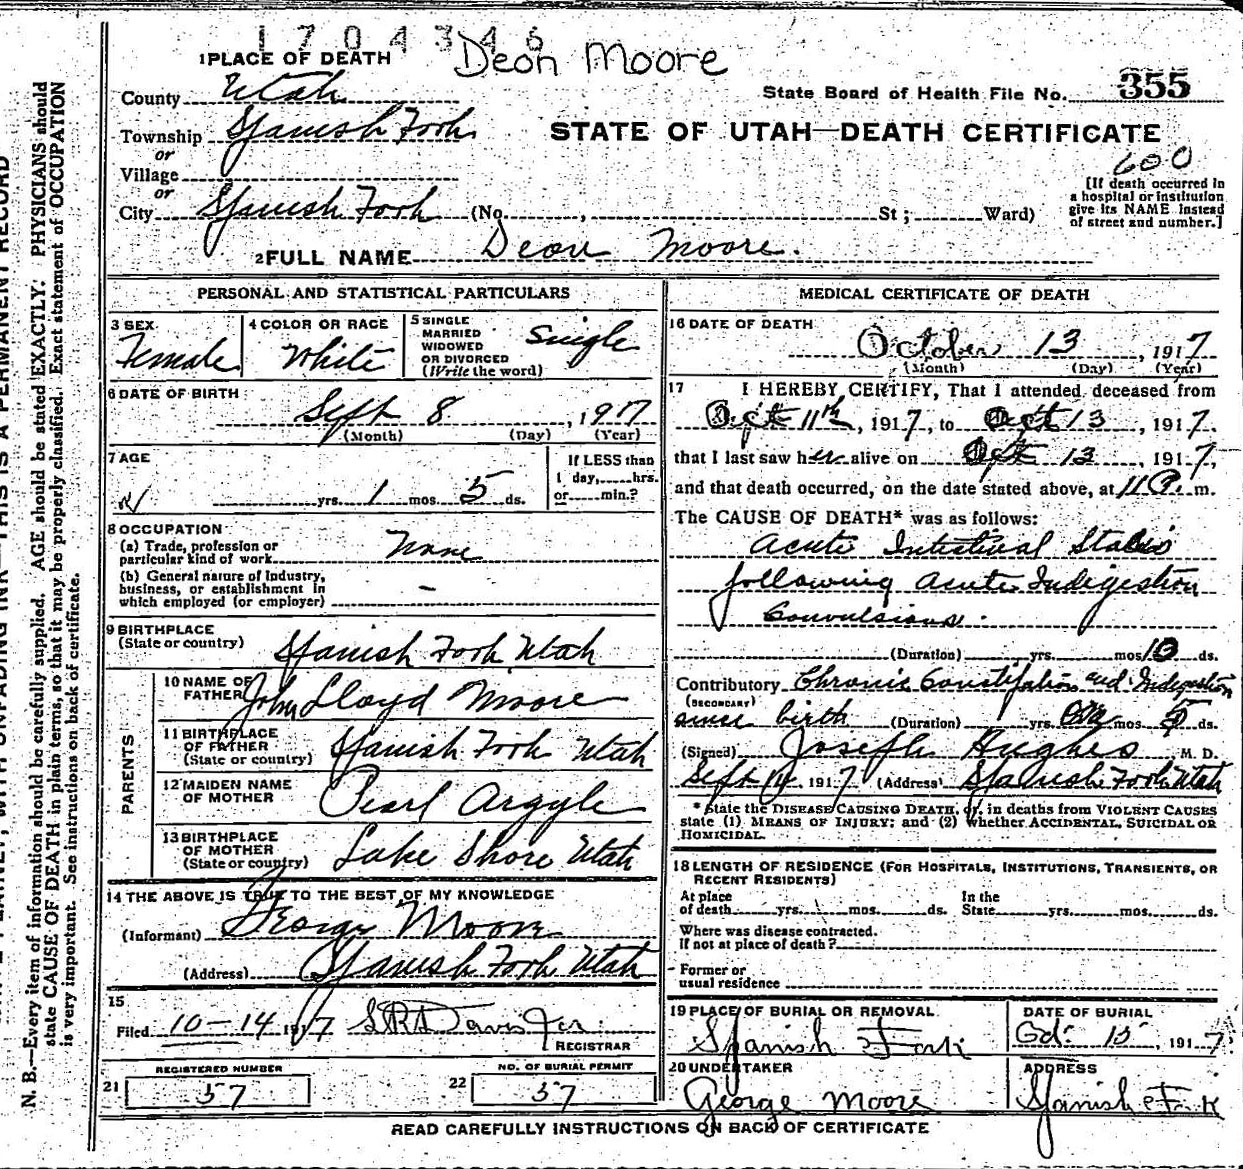 1704346
Deon Moore
1 PLACE OF DEATH
County Utah
State Board of Health File No. 355
Township Spanish Fork
or
STATE OF UTAH—DEATH CERTIFICATE
Village
or
600
City Spanish Fork (No. , St; Ward)
[If death occurred in
a hospital or institution
give its NAME instead
of street and number.]
2 FULL NAME Deon Moore.
PERSONAL AND STATISTICAL PARTICULARS
3 SEX
Female
4 COLOR OR RACE
White
5 SINGLE
MARRIED
WIDOWED
OR DIVORCED
(Write the word)
Single
6 DATE OF BIRTH
Sept 8, 1917
(Month) (Day) (Year)
7 AGE
yrs. 1 mos. 5 ds.
If LESS than
1 day, hrs.
or min.?
8 OCCUPATION
(a) Trade, profession or
particular kind of work None
(b) General nature of industry,
business, or establishment in
which employed (or employer) —
9 BIRTHPLACE
(State or country) Spanish Fork, Utah
PARENTS
10 NAME OF
FATHER John Lloyd Moore
11 BIRTHPLACE
OF FATHER
(State or country) Spanish Fork Utah
12 MAIDEN NAME
OF MOTHER Pearl Argyle
13 BIRTHPLACE
OF MOTHER
(State or country) Lake Shore Utah
14 THE ABOVE IS TRUE TO THE BEST OF MY KNOWLEDGE
(Informant) George Moore
(Address) Spanish Fork Utah
15
Filed 10-14 1917 Davis
REGISTRAR
REGISTERED NUMBER
21 37
NO. OF BURIAL PERMIT
22 37
MEDICAL CERTIFICATE OF DEATH
16 DATE OF DEATH
October 13, 1917
(Month) (Day) (Year)
17 I HEREBY CERTIFY, That I attended deceased from
Oct 11th, 1917, to Oct 13, 1917,
that I last saw her alive on Oct 13, 1917,
and that death occurred, on the date stated above, at 11 P. m.
The CAUSE OF DEATH* was as follows:
Acute Intestinal Stasis
following Acute Indigestion
Convulsions.
(Duration) yrs. mos 10 ds.
Contributory Chronic Constipation and Indigestion
(SECONDARY)
since birth (Duration) yrs. one mos. 5 ds.
(Signed) Joseph Hughes M. D.
Sept 14, 1917 (Address) Spanish Fork Utah
* State the DISEASE CAUSING DEATH, or, in deaths from VIOLENT CAUSES
state (1) MEANS OF INJURY; and (2) whether ACCIDENTAL, SUICIDAL OR
HOMICIDAL.
18 LENGTH OF RESIDENCE (FOR HOSPITALS, INSTITUTIONS, TRANSIENTS, OR
RECENT RESIDENTS)
At place In the
of death yrs. mos. ds. State yrs. mos. ds.
Where was disease contracted.
If not at place of death?
Former or
usual residence
19 PLACE OF BURIAL OR REMOVAL
Spanish Fork
DATE OF BURIAL
Oct. 15, 1917
20 UNDERTAKER
George Moore
ADDRESS
Spanish Fork
READ CAREFULLY INSTRUCTIONS ON BACK OF CERTIFICATE
N. B.—Every item of information should be carefully supplied. AGE should be stated EXACTLY. PHYSICIANS should
state CAUSE OF DEATH in plain terms, so that it may be properly classified. Exact statement of OCCUPATION
is very important. See instructions on back of certificate.